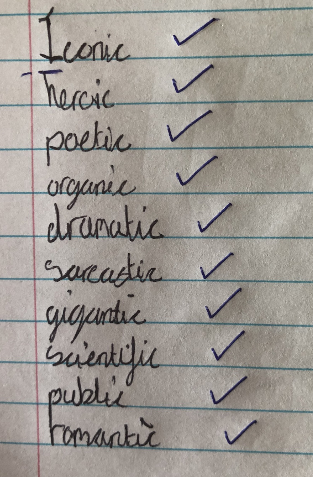 Iconic
heroic
poetic
organic
dramatic
sarcastic
gigantic
scientific
public
romantic